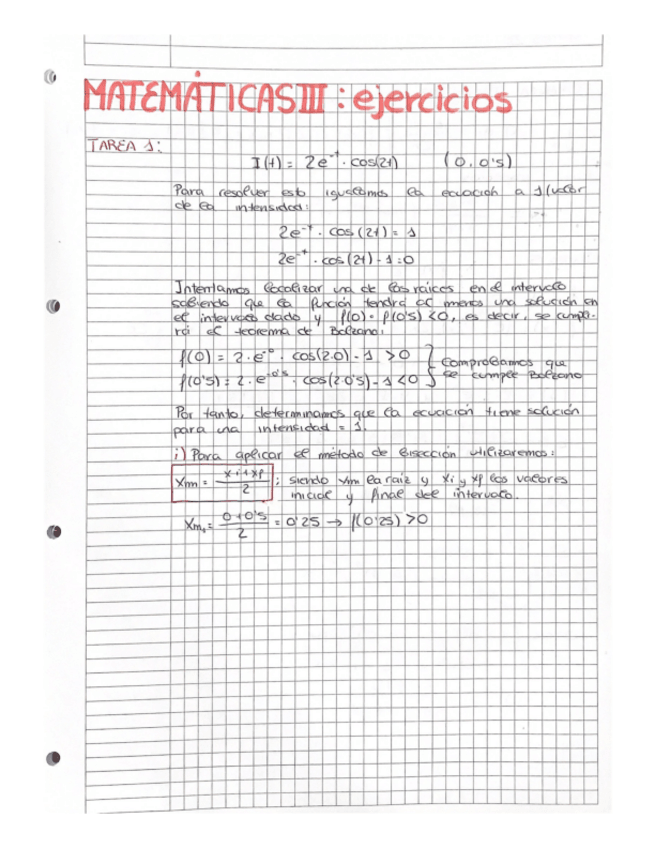 MATEMÁTICAS III : ejercicios
TAREA 1:
I(t) = 2e^-t · cos(2t) (0, 0'5)
Para resolver esto igualamos la ecuación a 1 (valor
de la intensidad:
2e^-t · cos(2t) = 1
2e^-t · cos(2t) - 1 = 0
Intentamos localizar una de las raices en el intervalo
sabiendo que la función tendrá al menos una solución en
el intervalo dado y f(0) · f(0'5) < 0, es decir, se cumpli-
rá el teorema de Bolzano:
f(0) = 2 · e^-0 · cos(2·0) - 1 > 0
f(0'5) = 2 · e^-0'5 · cos(2·0'5) - 1 < 0
} Comprobamos que
se cumple Bolzano
Por tanto, determinamos que la ecuación tiene solución
para una intensidad = 1.
i) Para aplicar el método de bisección utilizaremos:
Xm = (xi + xf)/2 ; siendo xm la raiz y xi y xf los valores
inicial y final del intervalo.
Xm₁ = (0+0'5)/2 = 0'25 → f(0'25) > 0